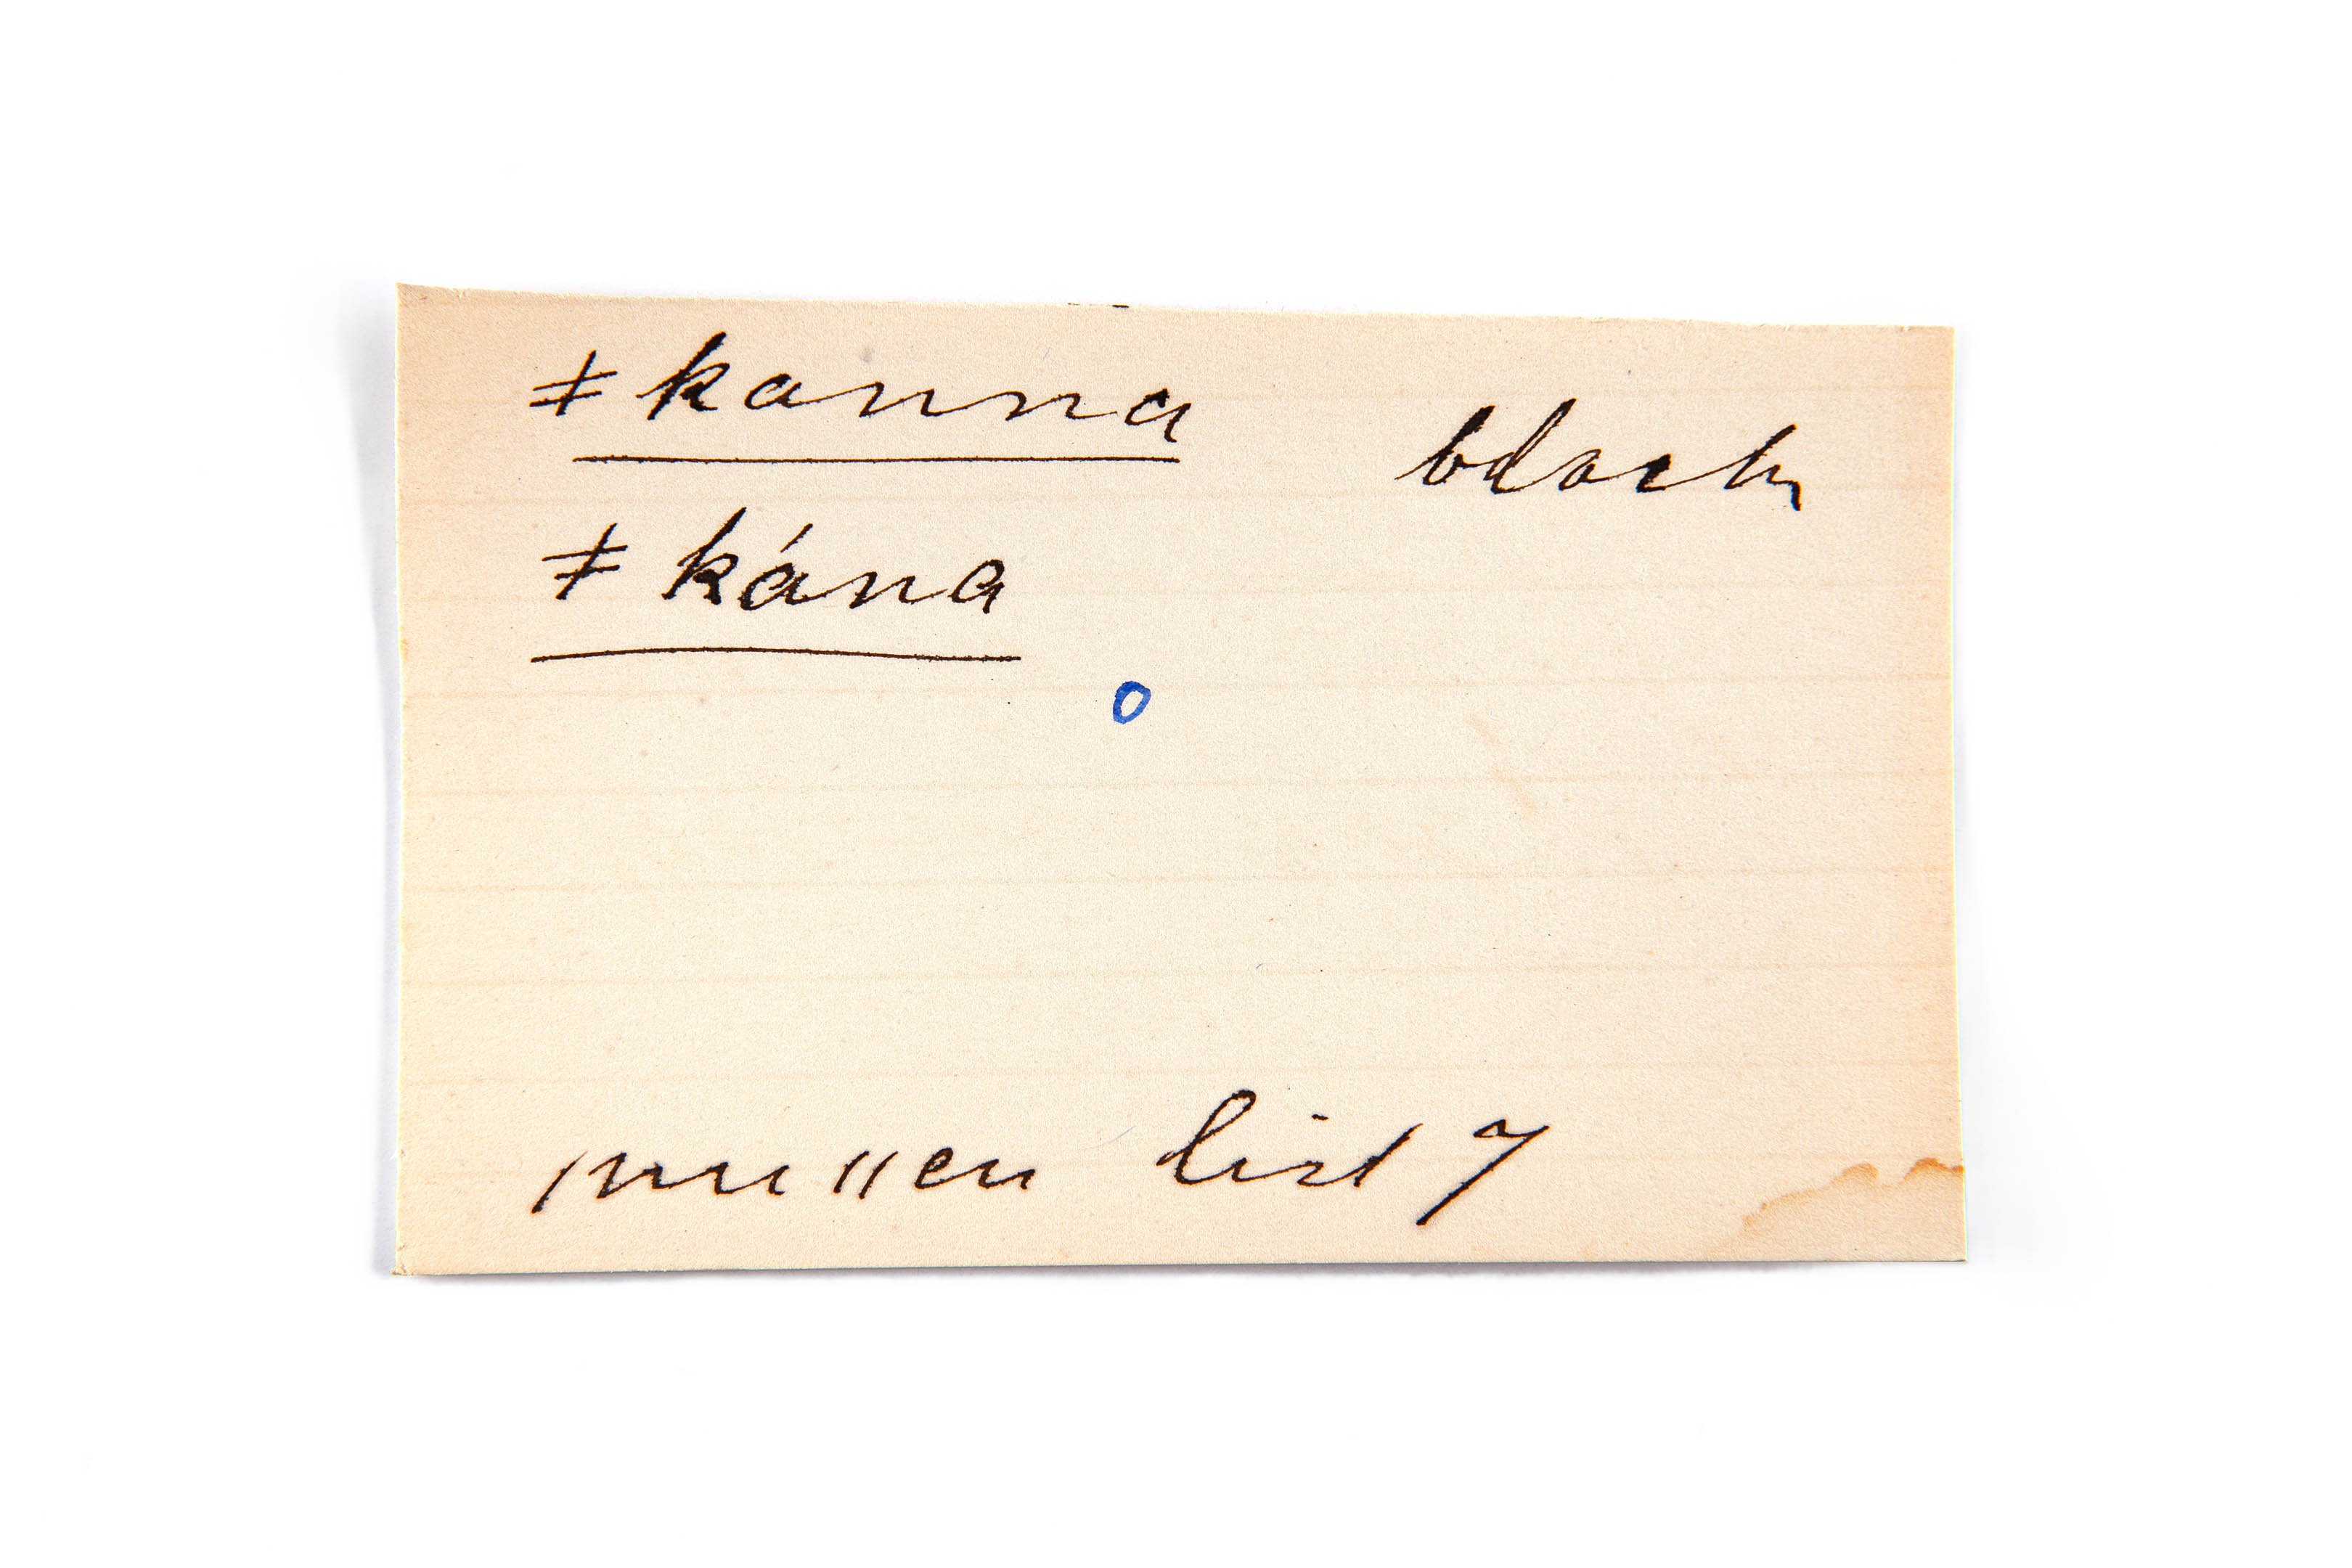 ǂkanna black
ǂkána
o
/nu //en list 7